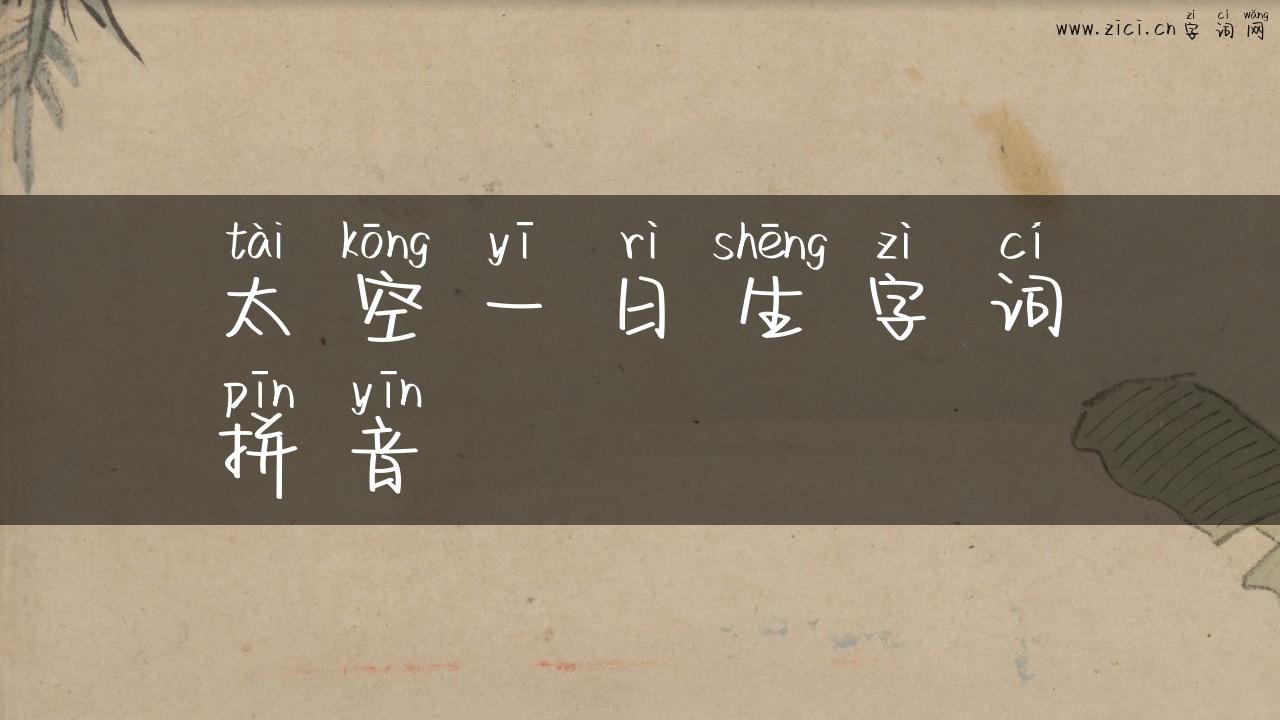 zì cí wǎng
www.zici.cn 字 词 网
tài kōng yī rì shēng zì cí
太 空 一 日 生 字 词
pīn yīn
拼 音